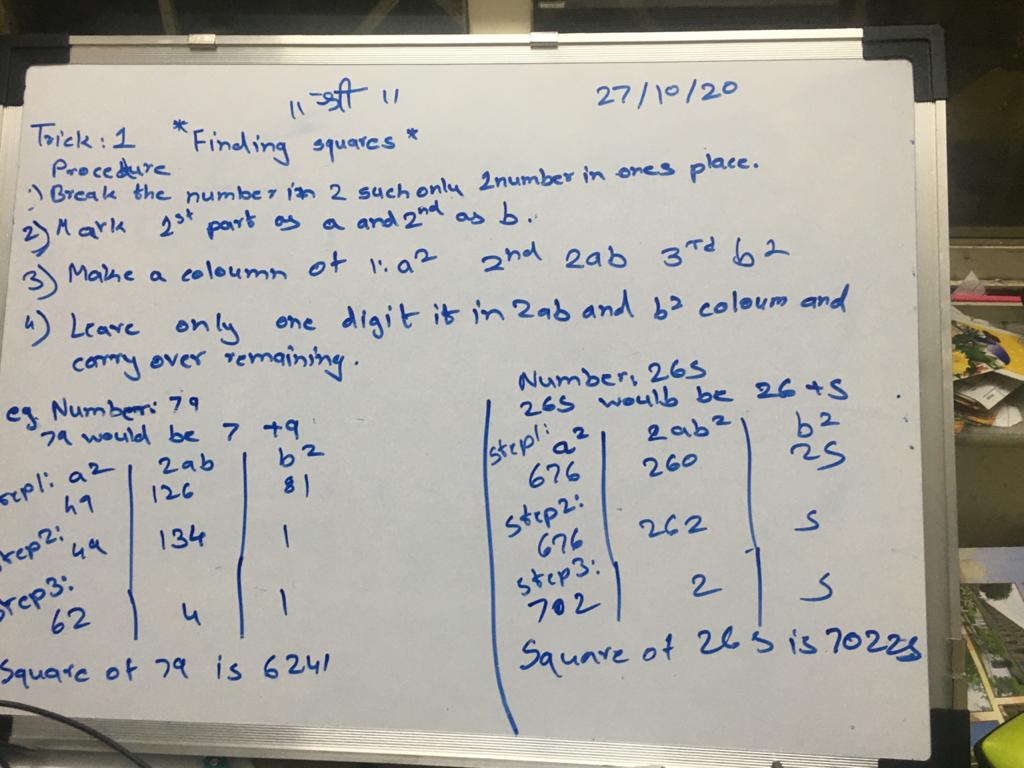 ॥ श्री ॥ 27/10/20
Trick: 1 *Finding squares*
Procedure
1) Break the number in 2 such only 1number in ones place.
2) Mark 1st part as a and 2nd as b.
3) Make a coloumn of 1: a2 2nd 2ab 3rd b2
4) Leave only one digit it in 2ab and b2 coloum and
carry over remaining.
eg Number: 79
79 would be 7 +9
step1: a2 2ab b2
49 126 81
step2: 49 134 1
step3:
62 4 1
Square of 79 is 6241
Number: 265
265 would be 26 +5
step1: a2 2ab2 b2
676 260 25
step2:
676 262 5
step3:
702 2 5
Square of 265 is 70225